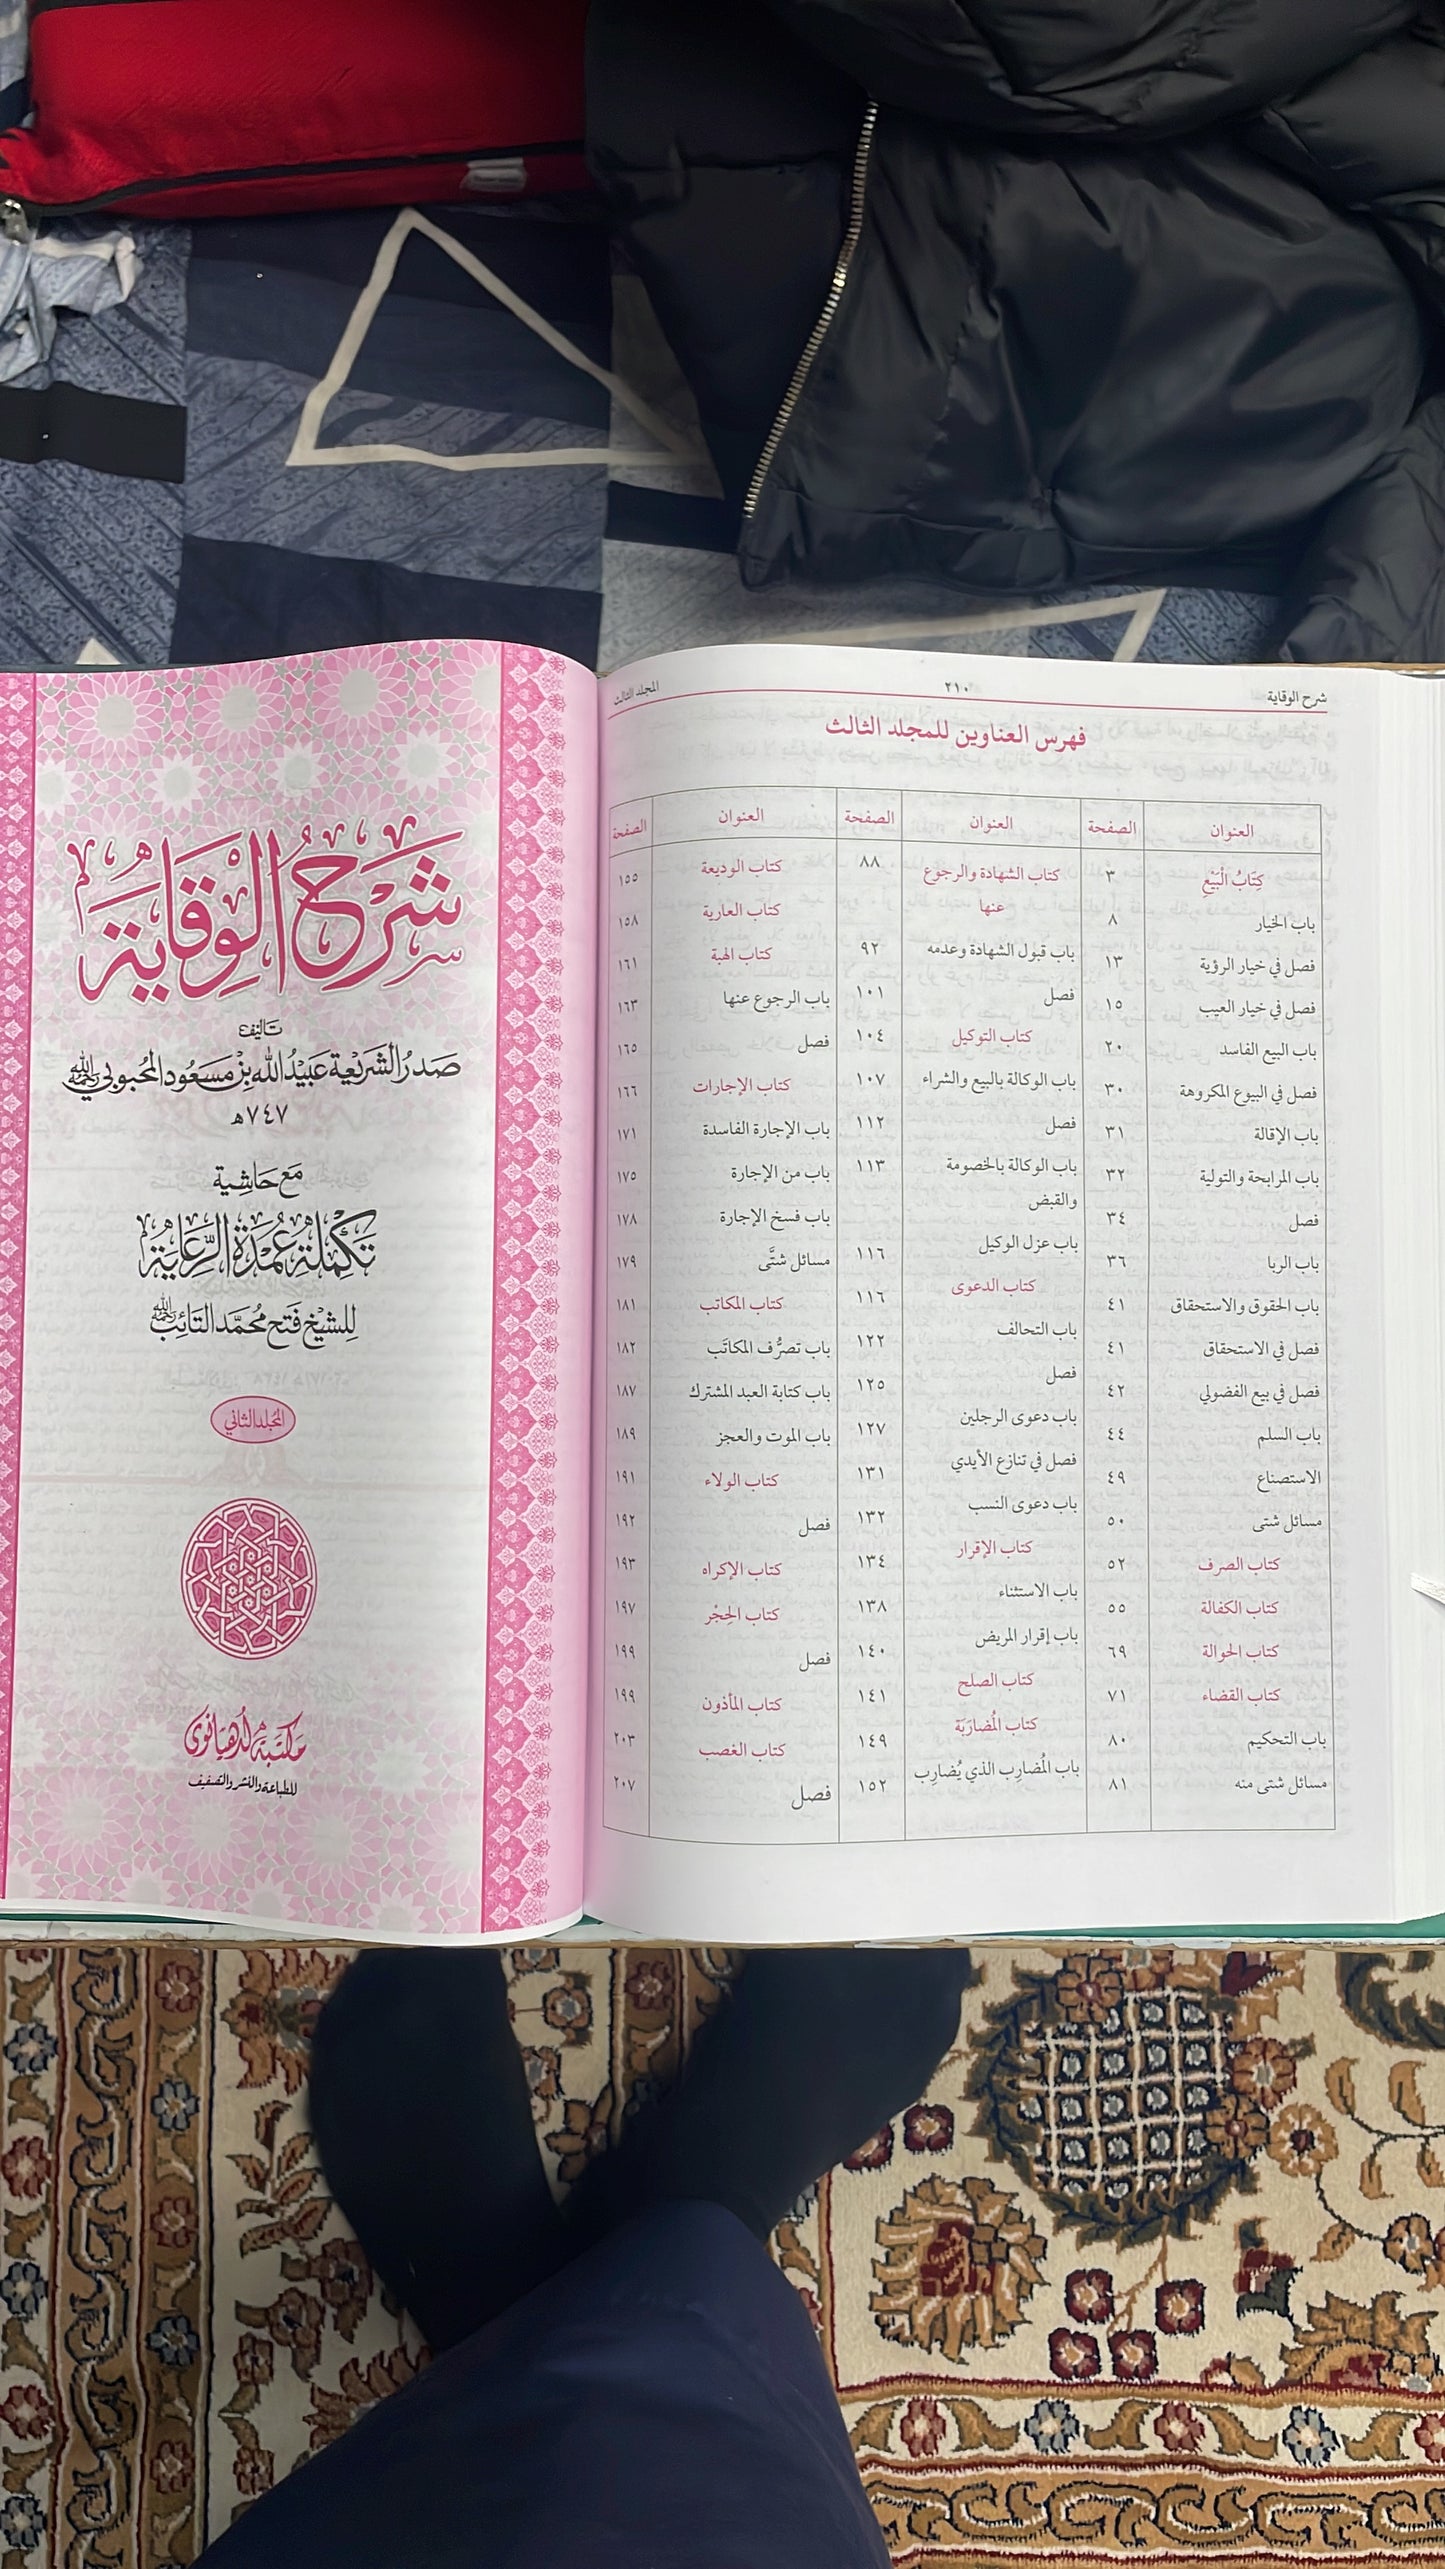 شرح الوقاية ٢١٠ المجلد الثالث
فهرس العناوين للمجلد الثالث
العنوان الصفحة العنوان الصفحة العنوان الصفحة
كِتَابُ الْبَيْعِ ٣
باب الخيار ٨
فصل في خيار الرؤية ١٣
فصل في خيار العيب ١٥
باب البيع الفاسد ٢٠
فصل في البيوع المكروهة ٣٠
باب الإقالة ٣١
باب المرابحة والتولية ٣٢
فصل ٣٤
باب الربا ٣٦
باب الحقوق والاستحقاق ٤١
فصل في الاستحقاق ٤١
فصل في بيع الفضولي ٤٢
باب السلم ٤٤
الاستصناع ٤٩
مسائل شتى ٥٠
كتاب الصرف ٥٢
كتاب الكفالة ٥٥
كتاب الحوالة ٦٩
كتاب القضاء ٧١
باب التحكيم ٨٠
مسائل شتى منه ٨١
كتاب الشهادة والرجوع ٨٨
عنها
باب قبول الشهادة وعدمه ٩٢
فصل ١٠١
كتاب التوكيل ١٠٤
باب الوكالة بالبيع والشراء ١٠٧
فصل ١١٢
باب الوكالة بالخصومة ١١٣
والقبض
باب عزل الوكيل ١١٦
كتاب الدعوى ١١٦
باب التحالف ١٢٢
فصل ١٢٥
باب دعوى الرجلين ١٢٧
فصل في تنازع الأيدي ١٣١
باب دعوى النسب ١٣٢
كتاب الإقرار ١٣٤
باب الاستثناء ١٣٨
باب إقرار المريض ١٤٠
كتاب الصلح ١٤١
كتاب المُضارَبَة ١٤٩
باب المُضارِب الذي يُضارِب ١٥٢
كتاب الوديعة ١٥٥
كتاب العارية ١٥٨
كتاب الهبة ١٦١
باب الرجوع عنها ١٦٣
فصل ١٦٥
كتاب الإجارات ١٦٦
باب الإجارة الفاسدة ١٧١
باب من الإجارة ١٧٥
باب فسخ الإجارة ١٧٨
مسائل شتَّى ١٧٩
كتاب المكاتب ١٨١
باب تصرُّف المكاتَب ١٨٢
باب كتابة العبد المشترك ١٨٧
باب الموت والعجز ١٨٩
كتاب الولاء ١٩١
فصل ١٩٢
كتاب الإكراه ١٩٣
كتاب الحِجْر ١٩٧
فصل ١٩٩
كتاب المأذون ١٩٩
كتاب الغصب ٢٠٣
فصل ٢٠٧
شَرْحُ الْوِقَايَة
تأليف
صَدرُ الشَّرِيْعَة عُبَيْدُ اللّٰه بْنُ مَسْعُود المَحْبُوبِي رحمه الله
٧٤٧ هـ
مَع حَاشِية
تَكْمِلَة عُمْدَة الرِّعَايَة
لِلشَّيْخ فَتْح مُحَمَّد التَّائِب رحمه الله
المجلد الثاني
مكتبة لدهيانوي
للطباعة والنشر والتصفيف